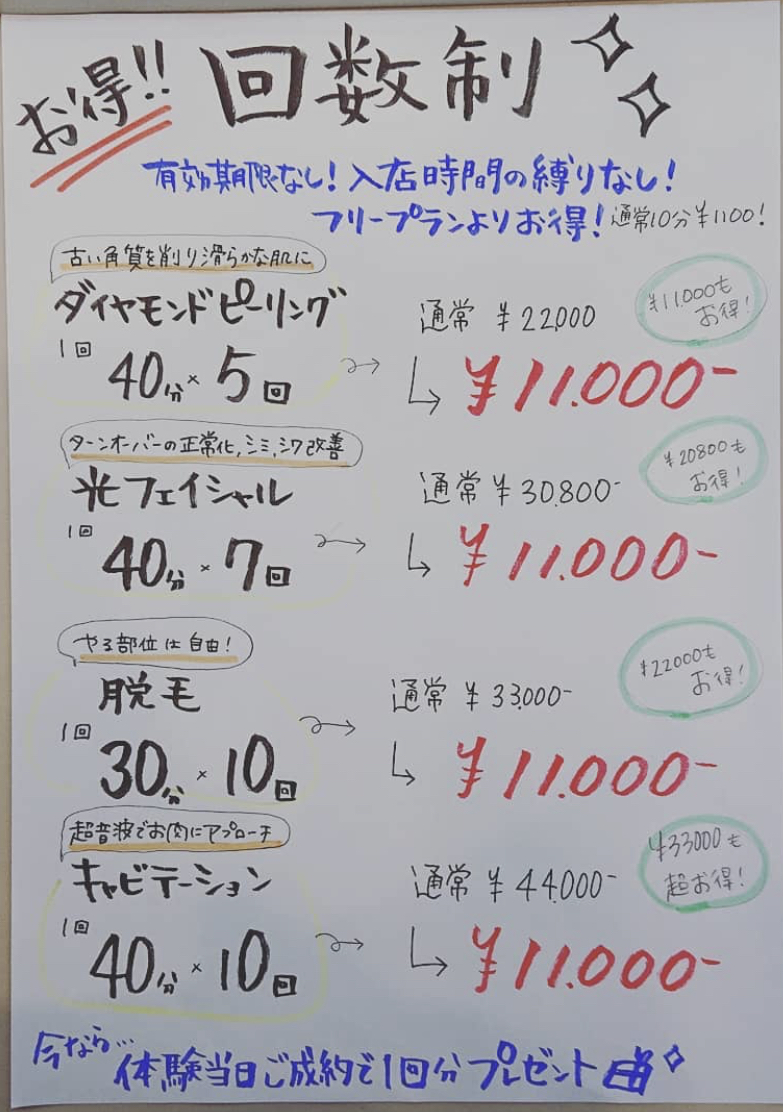 お得!! 回数制
有効期限なし！入店時間の縛りなし！
フリープランよりお得！通常10分¥1100！
古い角質を削り滑らかな肌に
ダイヤモンドピーリング
1回 40分×5回
通常 ¥22000
¥11.000-
¥11.000も
お得！
ターンオーバーの正常化,シミ,シワ改善
光フェイシャル
1回 40分×7回
通常 ¥30.800-
¥11.000-
¥20800も
お得！
やる部位は自由！
脱毛
1回 30分×10回
通常 ¥33.000-
¥11.000-
¥22000も
お得！
超音波でお肉にアプローチ
キャビテーション
1回 40分×10回
通常 ¥44.000-
¥11.000-
¥33000も
超お得！
今なら…
体験当日ご成約で1回分プレゼント